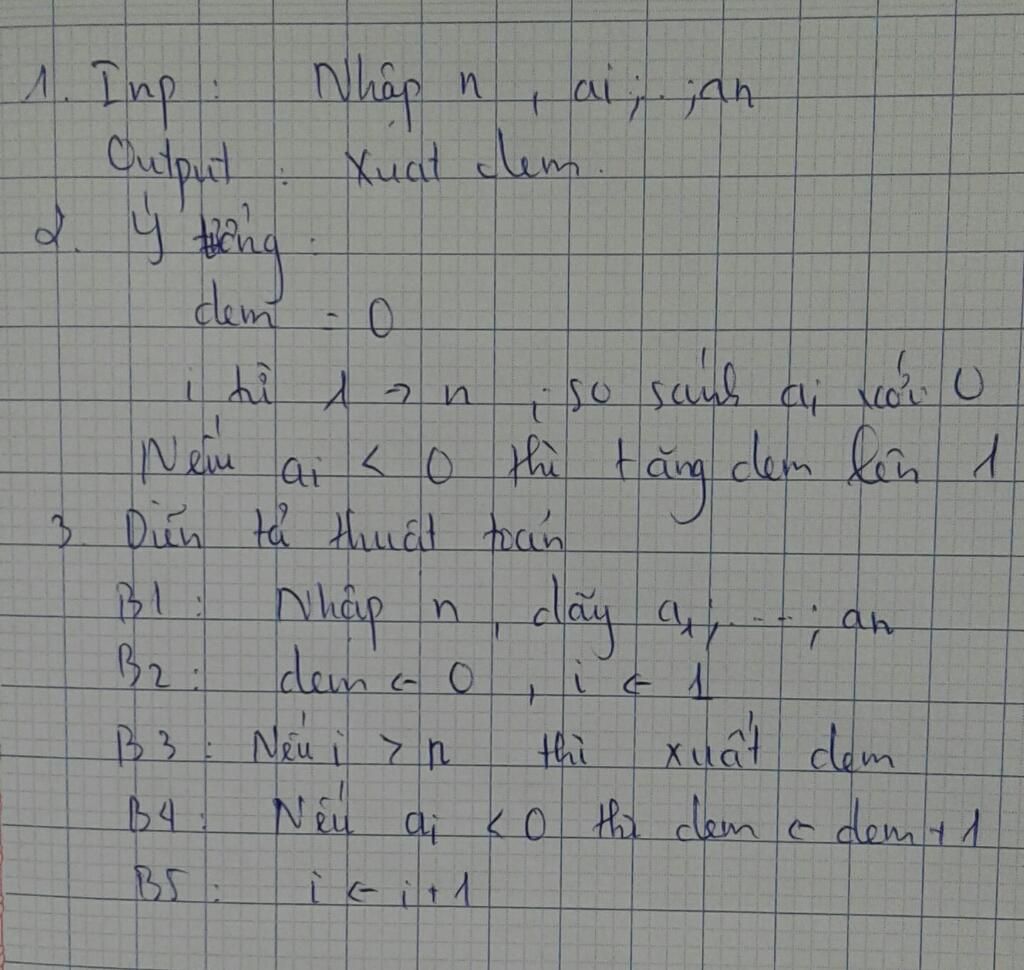 1. Inp : Nhập n , ai ; . ; an
Output : Xuat dem.
2. Ý tưởng :
dem = 0
i từ 1 → n , so sánh ai với 0
Nếu ai < 0 thì tăng dem lên 1
3 Diễn tả thuật toán
B1 : Nhập n , dãy a1 ; --- ; an
B2 : dem ← 0 , i ← 1
B3 : Nếu i > n thì xuất dem
B4 : Nếu ai < 0 thì dem ← dem + 1
B5 : i ← i + 1